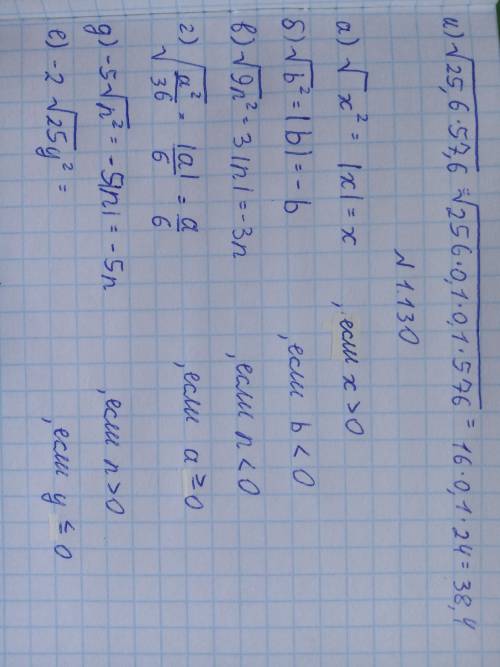 и) √25,6·57,6 = √256·0,1·0,1·576 = 16·0,1·24 = 38,4
№ 1.130
а) √x² = |x| = x , если x > 0
б) √b² = |b| = -b , если b < 0
в) √9n² = 3|n| = -3n , если n < 0
г) √a²/36 = |a|/6 = a/6 , если a ≥ 0
д) -5√n² = -5|n| = -5n , если n > 0
е) -2√25y² = , если y ≤ 0